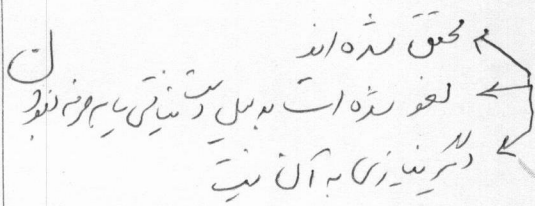 محقق شده اند
لغو شده است به دلیل دست نیافتنی یا به صرفه نبودن
دیگر نیازی به آن نیست